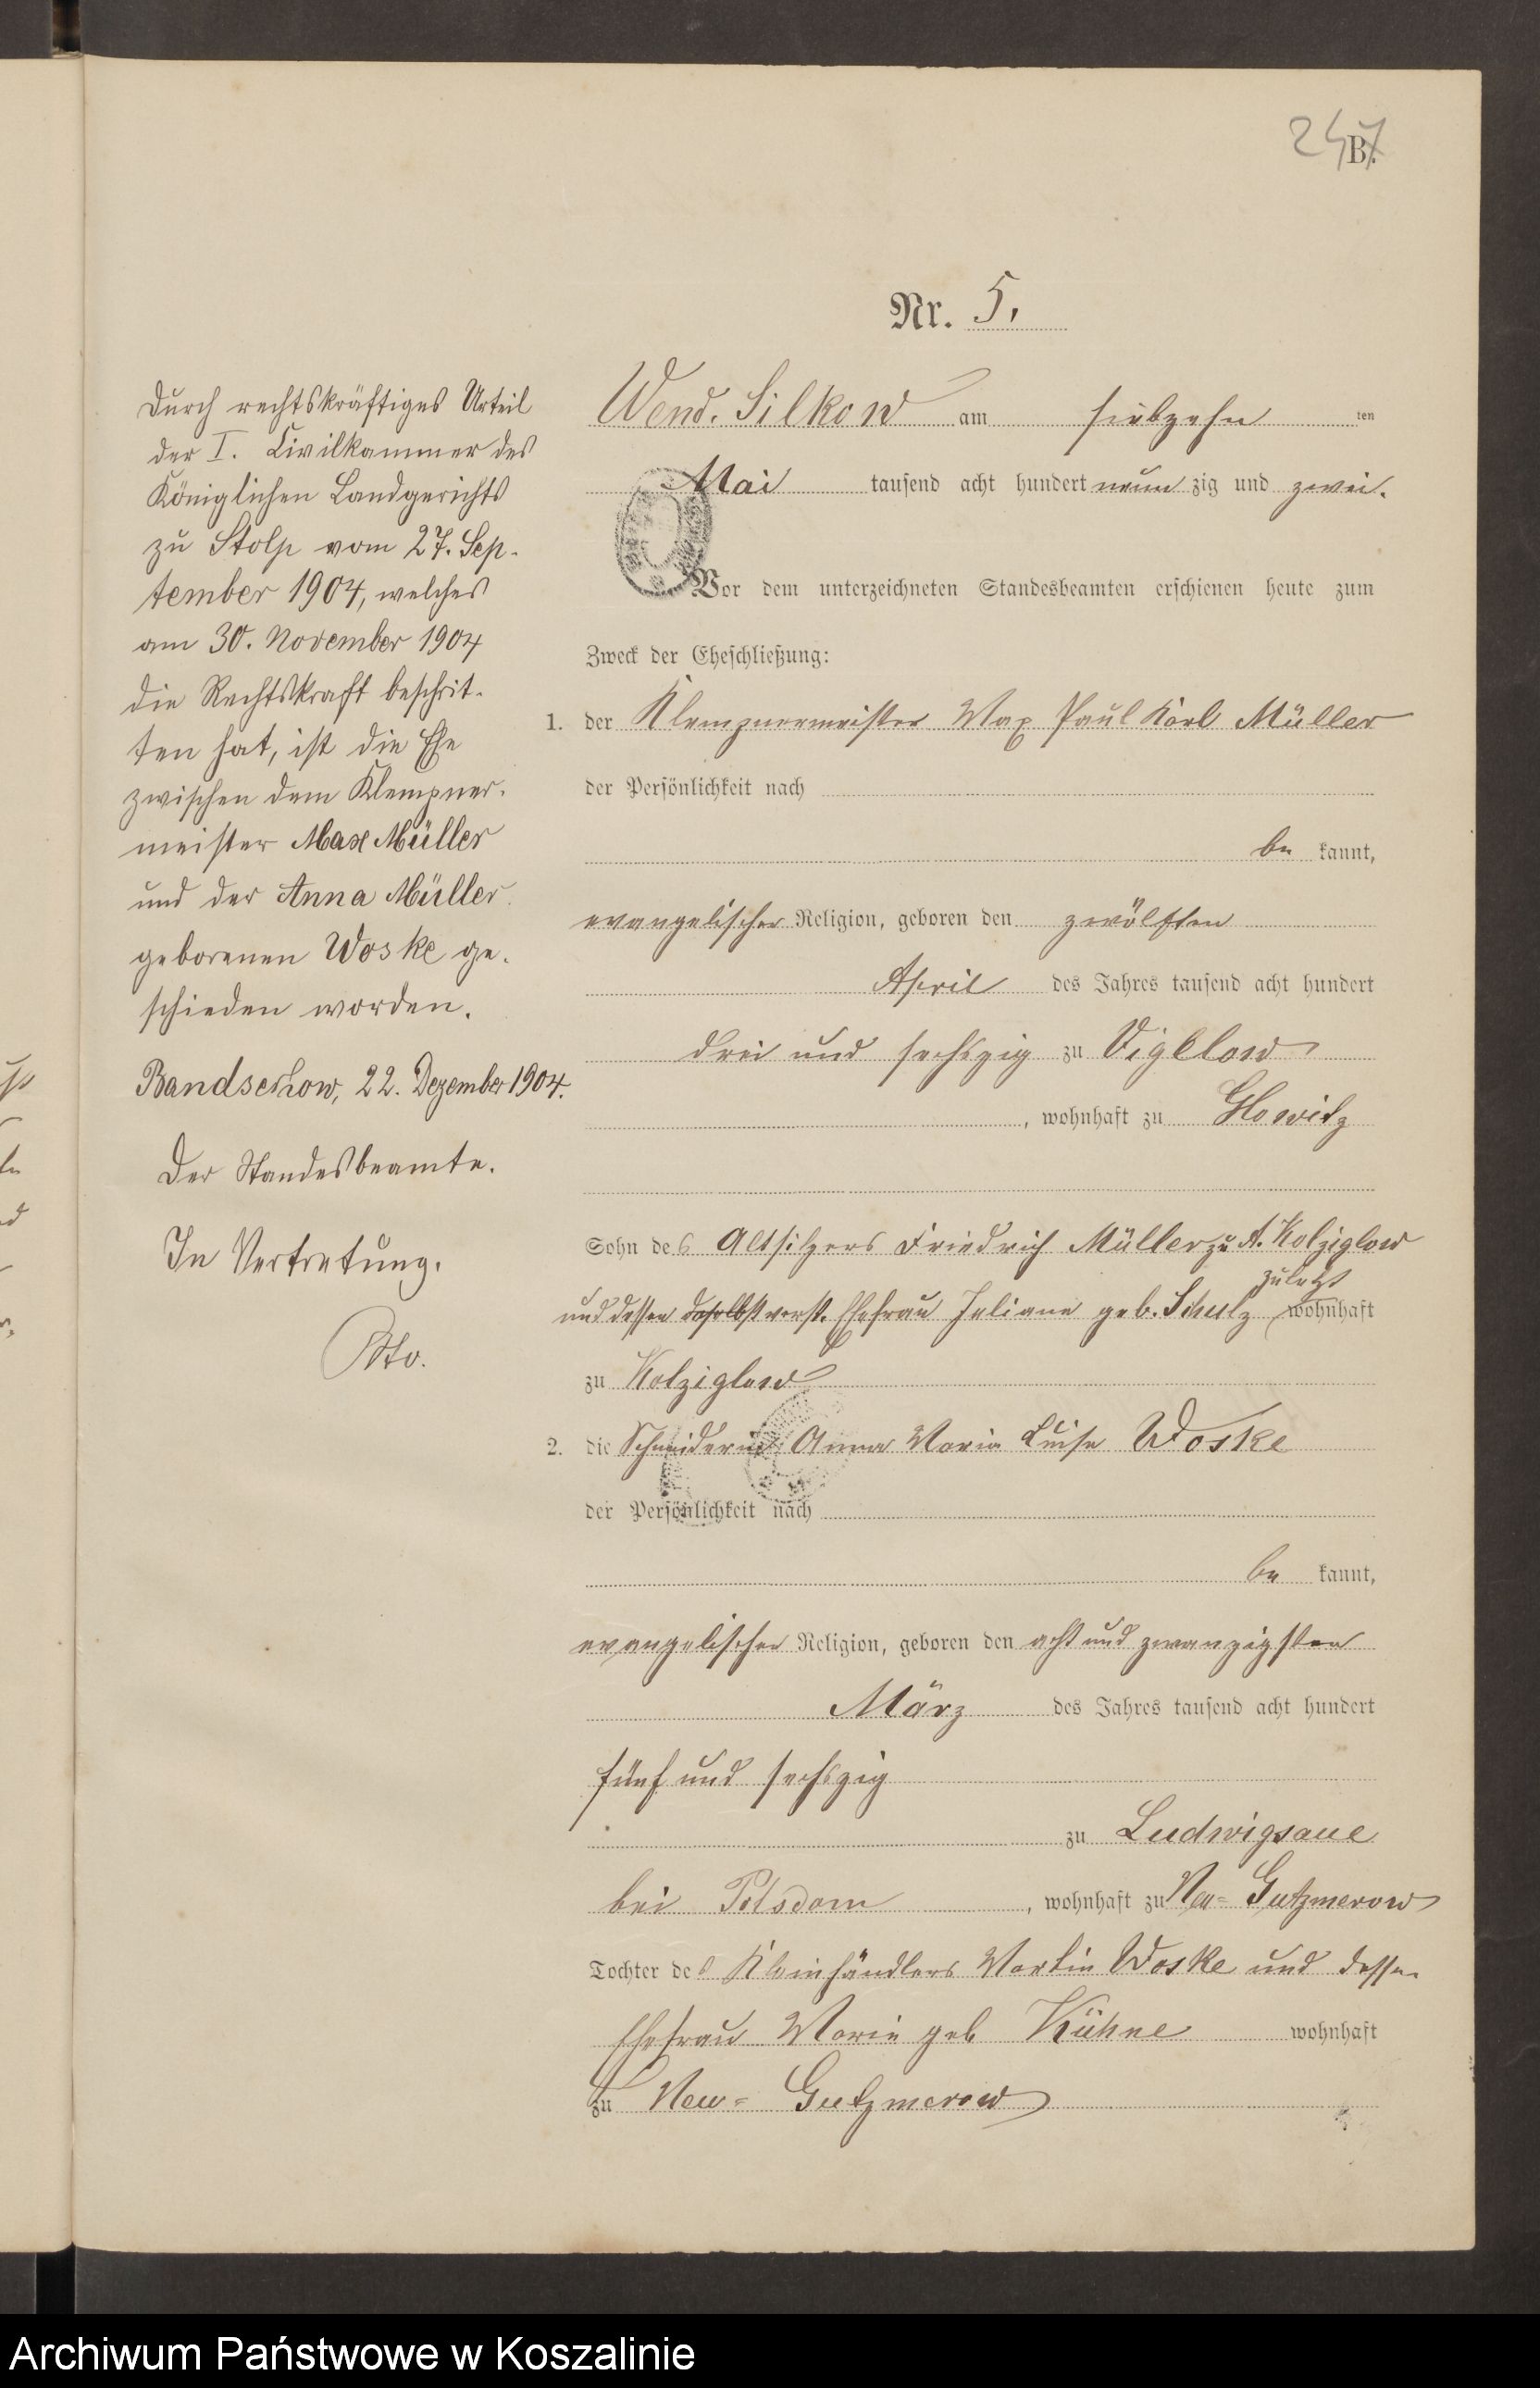 247
B.
Nr. 5.
Durch rechtskräftiges Urteil
der I. Civilkammer des
Königlichen Landgerichts
zu Stolp vom 27. Sep-
tember 1904, welches
am 30. November 1904
die Rechtskraft beschrit-
ten hat, ist die Ehe
zwischen dem Klempner-
meister Max Müller
und der Anna Müller
geborenen Woske ge-
schieden worden.
Bandsechow, 22. Dezember 1904.
Der Standesbeamte.
In Vertretung.
Wend. Silkow am siebzehn ten
Mai tausend acht hundert neun zig und zwei.
Vor dem unterzeichneten Standesbeamten erschienen heute zum
Zweck der Eheschließung:
1. der Klempnermeister Max Paul Karl Müller
der Persönlichkeit nach
be kannt,
evangelischer Religion, geboren den zwölften
April des Jahres tausend acht hundert
drei und sechszig zu Viglow
, wohnhaft zu Glowitz
Sohn des Altsitzers Friedrich Müller zu A. Kolziglow
und dessen daselbst verst. Ehefrau Juliane geb. Schulz zuletzt wohnhaft
zu Kolziglow
2. die Schneiderin Anna Marie Luise Woske
der Persönlichkeit nach
be kannt,
evangelischer Religion, geboren den acht und zwanzigsten
März des Jahres tausend acht hundert
fünf und sechszig
zu Ludwigsaue
bei Potsdam , wohnhaft zu Neu- Gutzmerow
Tochter des Kleinhändlers Martin Woske und dessen
Ehefrau Marie geb Kühne wohnhaft
zu Neu- Gutzmerow
Archiwum Państwowe w Koszalinie